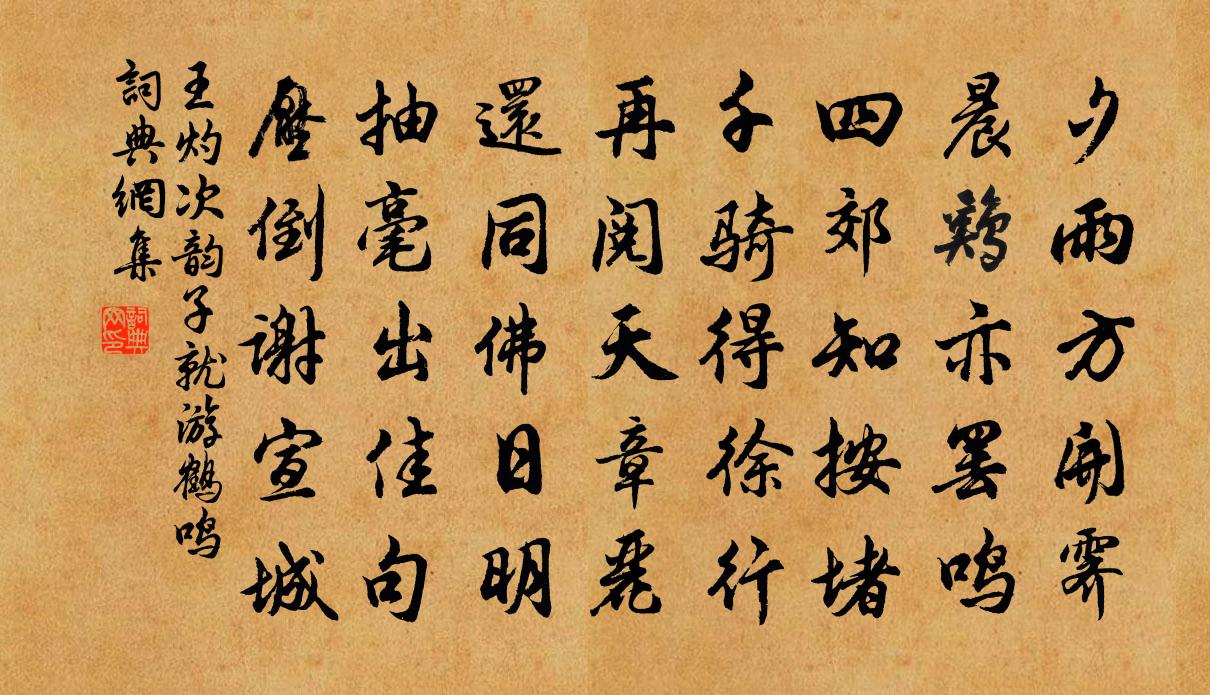 夕雨方開霽
晨鷄亦罢鳴
四郊知按堵
千騎得徐行
再閱天章麗
還同佛日明
抽毫出佳句
壓倒謝宣城
王灼次韵子就游鶴鳴
詞典網集
詞典網印